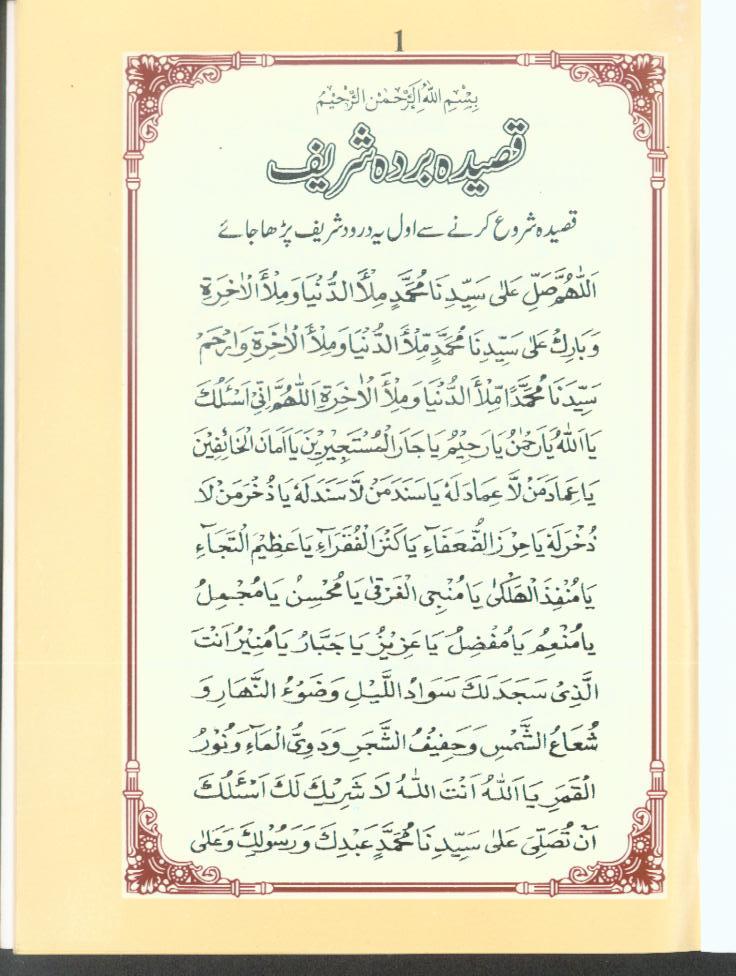 1
بِسْمِ اللّٰهِ الرَّحْمٰنِ الرَّحِيْمُ
قصیدہ بردہ شریف
قصیدہ شروع کرنے سے اول یہ درود شریف پڑھا جائے
اَللّٰهُمَّ صَلِّ عَلٰى سَيِّدِنَا مُحَمَّدٍ مِلْأَ الدُّنْيَا وَمِلْأَ الْاٰخِرَةِ
وَبَارِكْ عَلٰى سَيِّدِنَا مُحَمَّدٍ مِّلْأَ الدُّنْيَا وَمِلْأَ الْاٰخِرَةِ وَارْحَمْ
سَيِّدَنَا مُحَمَّدًا مِّلْأَ الدُّنْيَا وَمِلْأَ الْاٰخِرَةِ اَللّٰهُمَّ اِنِّىْ اَسْئَلُكَ
يَا اَللّٰهُ يَا رَحْمٰنُ يَا رَحِيْمُ يَا جَارَ الْمُسْتَجِيْرِيْنَ يَا اَمَانَ الْخَائِفِيْنَ
يَا عِمَادَ مَنْ لَّا عِمَادَ لَهٗ يَا سَنَدَ مَنْ لَّا سَنَدَ لَهٗ يَا ذُخْرَ مَنْ لَا
ذُخْرَ لَهٗ يَا حِرْزَ الضُّعَفَاءِ يَا كَنْزَ الْفُقَرَآءِ يَا عَظِيْمَ الْتَجَآءِ
يَا مُنْفِذَ الْهَلْكٰى يَا مُنْجِىَ الْغَرْقٰى يَا مُحْسِنُ يَا مُجْمِلُ
يَا مُنْعِمُ يَا مُفْضِلُ يَا عَزِيْزُ يَا جَبَّارُ يَا مُنِيْرُ اَنْتَ
الَّذِىْ سَجَدَ لَكَ سَوَادُ اللَّيْلِ وَضَوْءُ النَّهَارِ وَ
شُعَاعُ الشَّمْسِ وَحَفِيْفُ الشَّجَرِ وَدَوِىُّ الْمَآءِ وَنُوْرُ
الْقَمَرِ يَا اَللّٰهُ اَنْتَ اللّٰهُ لَا شَرِيْكَ لَكَ اَسْئَلُكَ
اَنْ تُصَلِّىَ عَلٰى سَيِّدِنَا مُحَمَّدٍ عَبْدِكَ وَرَسُوْلِكَ وَعَلٰى